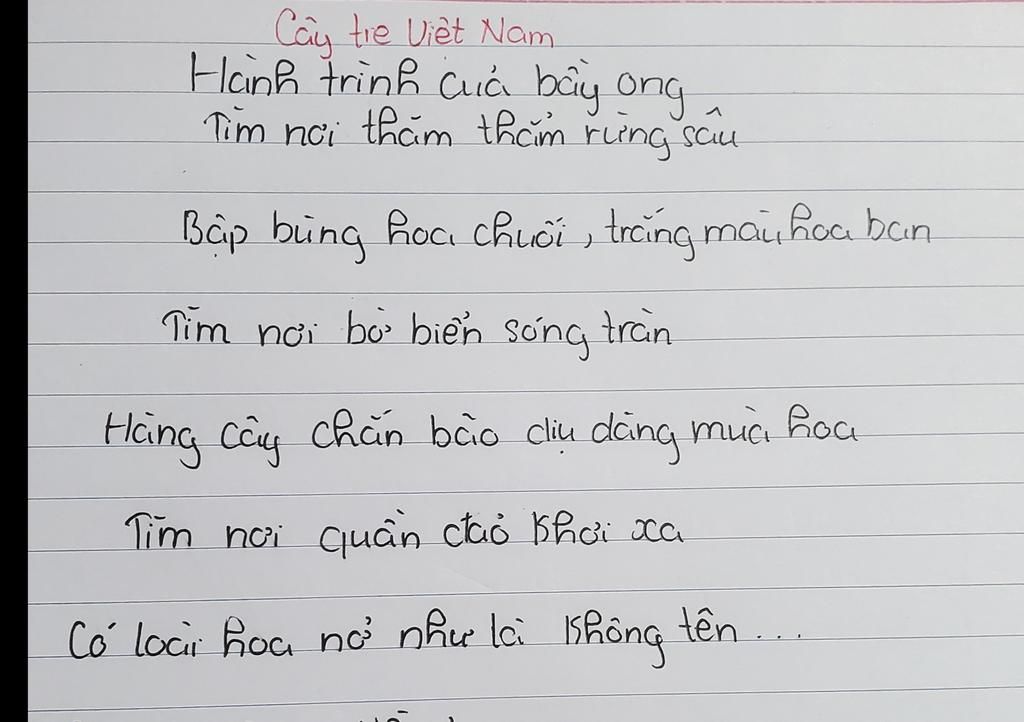 Cây tre Việt Nam
Hành trình của bầy ong
Tìm nơi thăm thẳm rừng sâu
Bập bùng hoa chuối, trắng màu hoa ban
Tìm nơi bờ biển sóng tràn
Hàng cây chắn bão dịu dàng mùa hoa
Tìm nơi quần đảo khơi xa
Có loài hoa nở như là không tên...